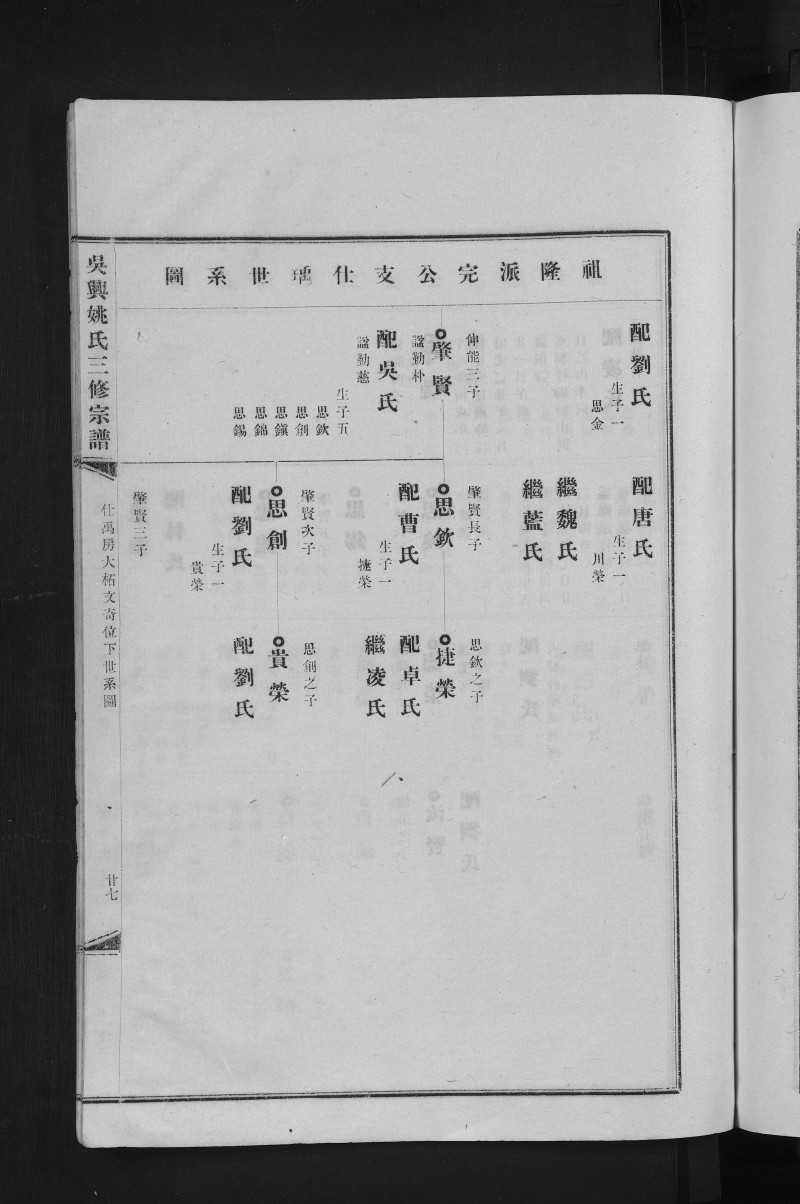 祖隆派完公支仕瑀世系圖
配劉氏
生子一
思金
伸能三子
肇賢
諡勤朴
配吳氏
諡勤慈
生子五
思欽
思創
思鎭
思錦
思錫
配唐氏
生子一
川榮
繼魏氏
繼藍氏
肇賢長子
思欽
配曹氏
生子一
捷榮
肇賢次子
思創
配劉氏
生子一
貴榮
肇賢三子
思欽之子
捷榮
配卓氏
繼凌氏
思創之子
貴榮
配劉氏
吳興姚氏三修宗譜
仕禹房大栢文奇位下世系圖
廿七